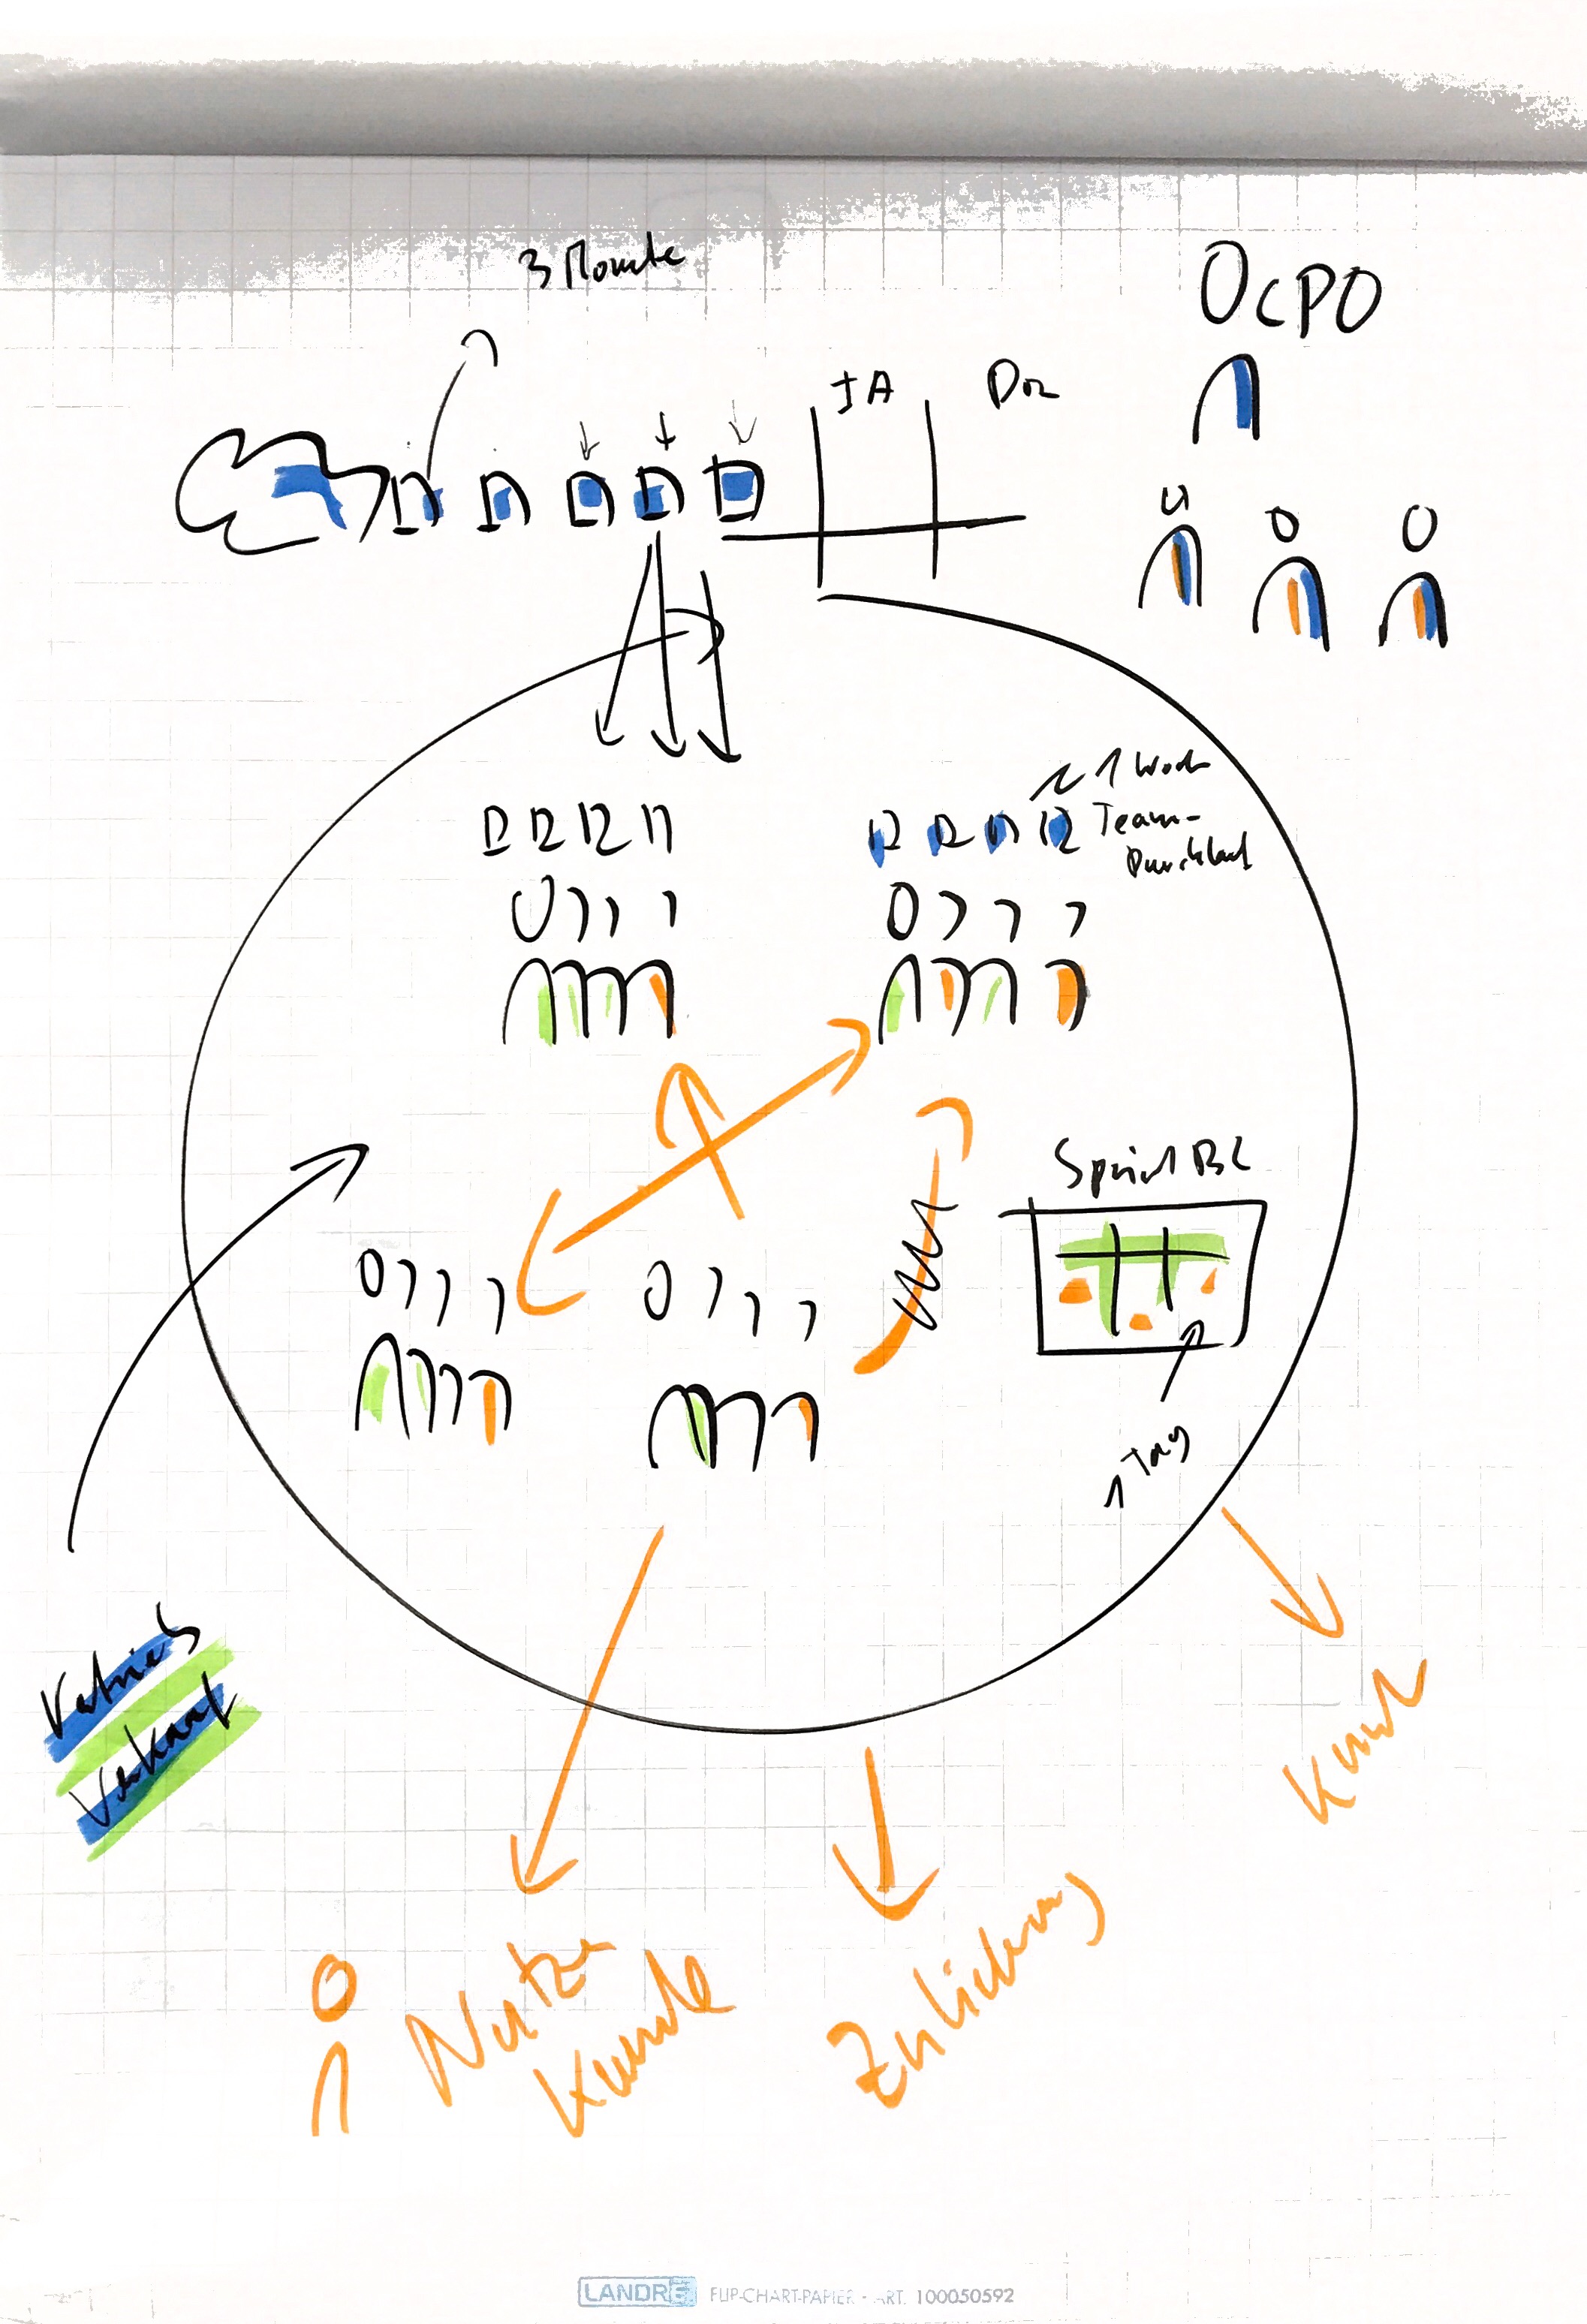 3 Monate
CPO
IA
Done
~ 1 Woche
Team-
Durchlauf
Sprint BL
1 Tag
Vertrieb
Verkauf
Kunde
Nutzer
Kunde
Zulieferung
LANDRÉ FLIP-CHART-PAPIER - ART. 100050592